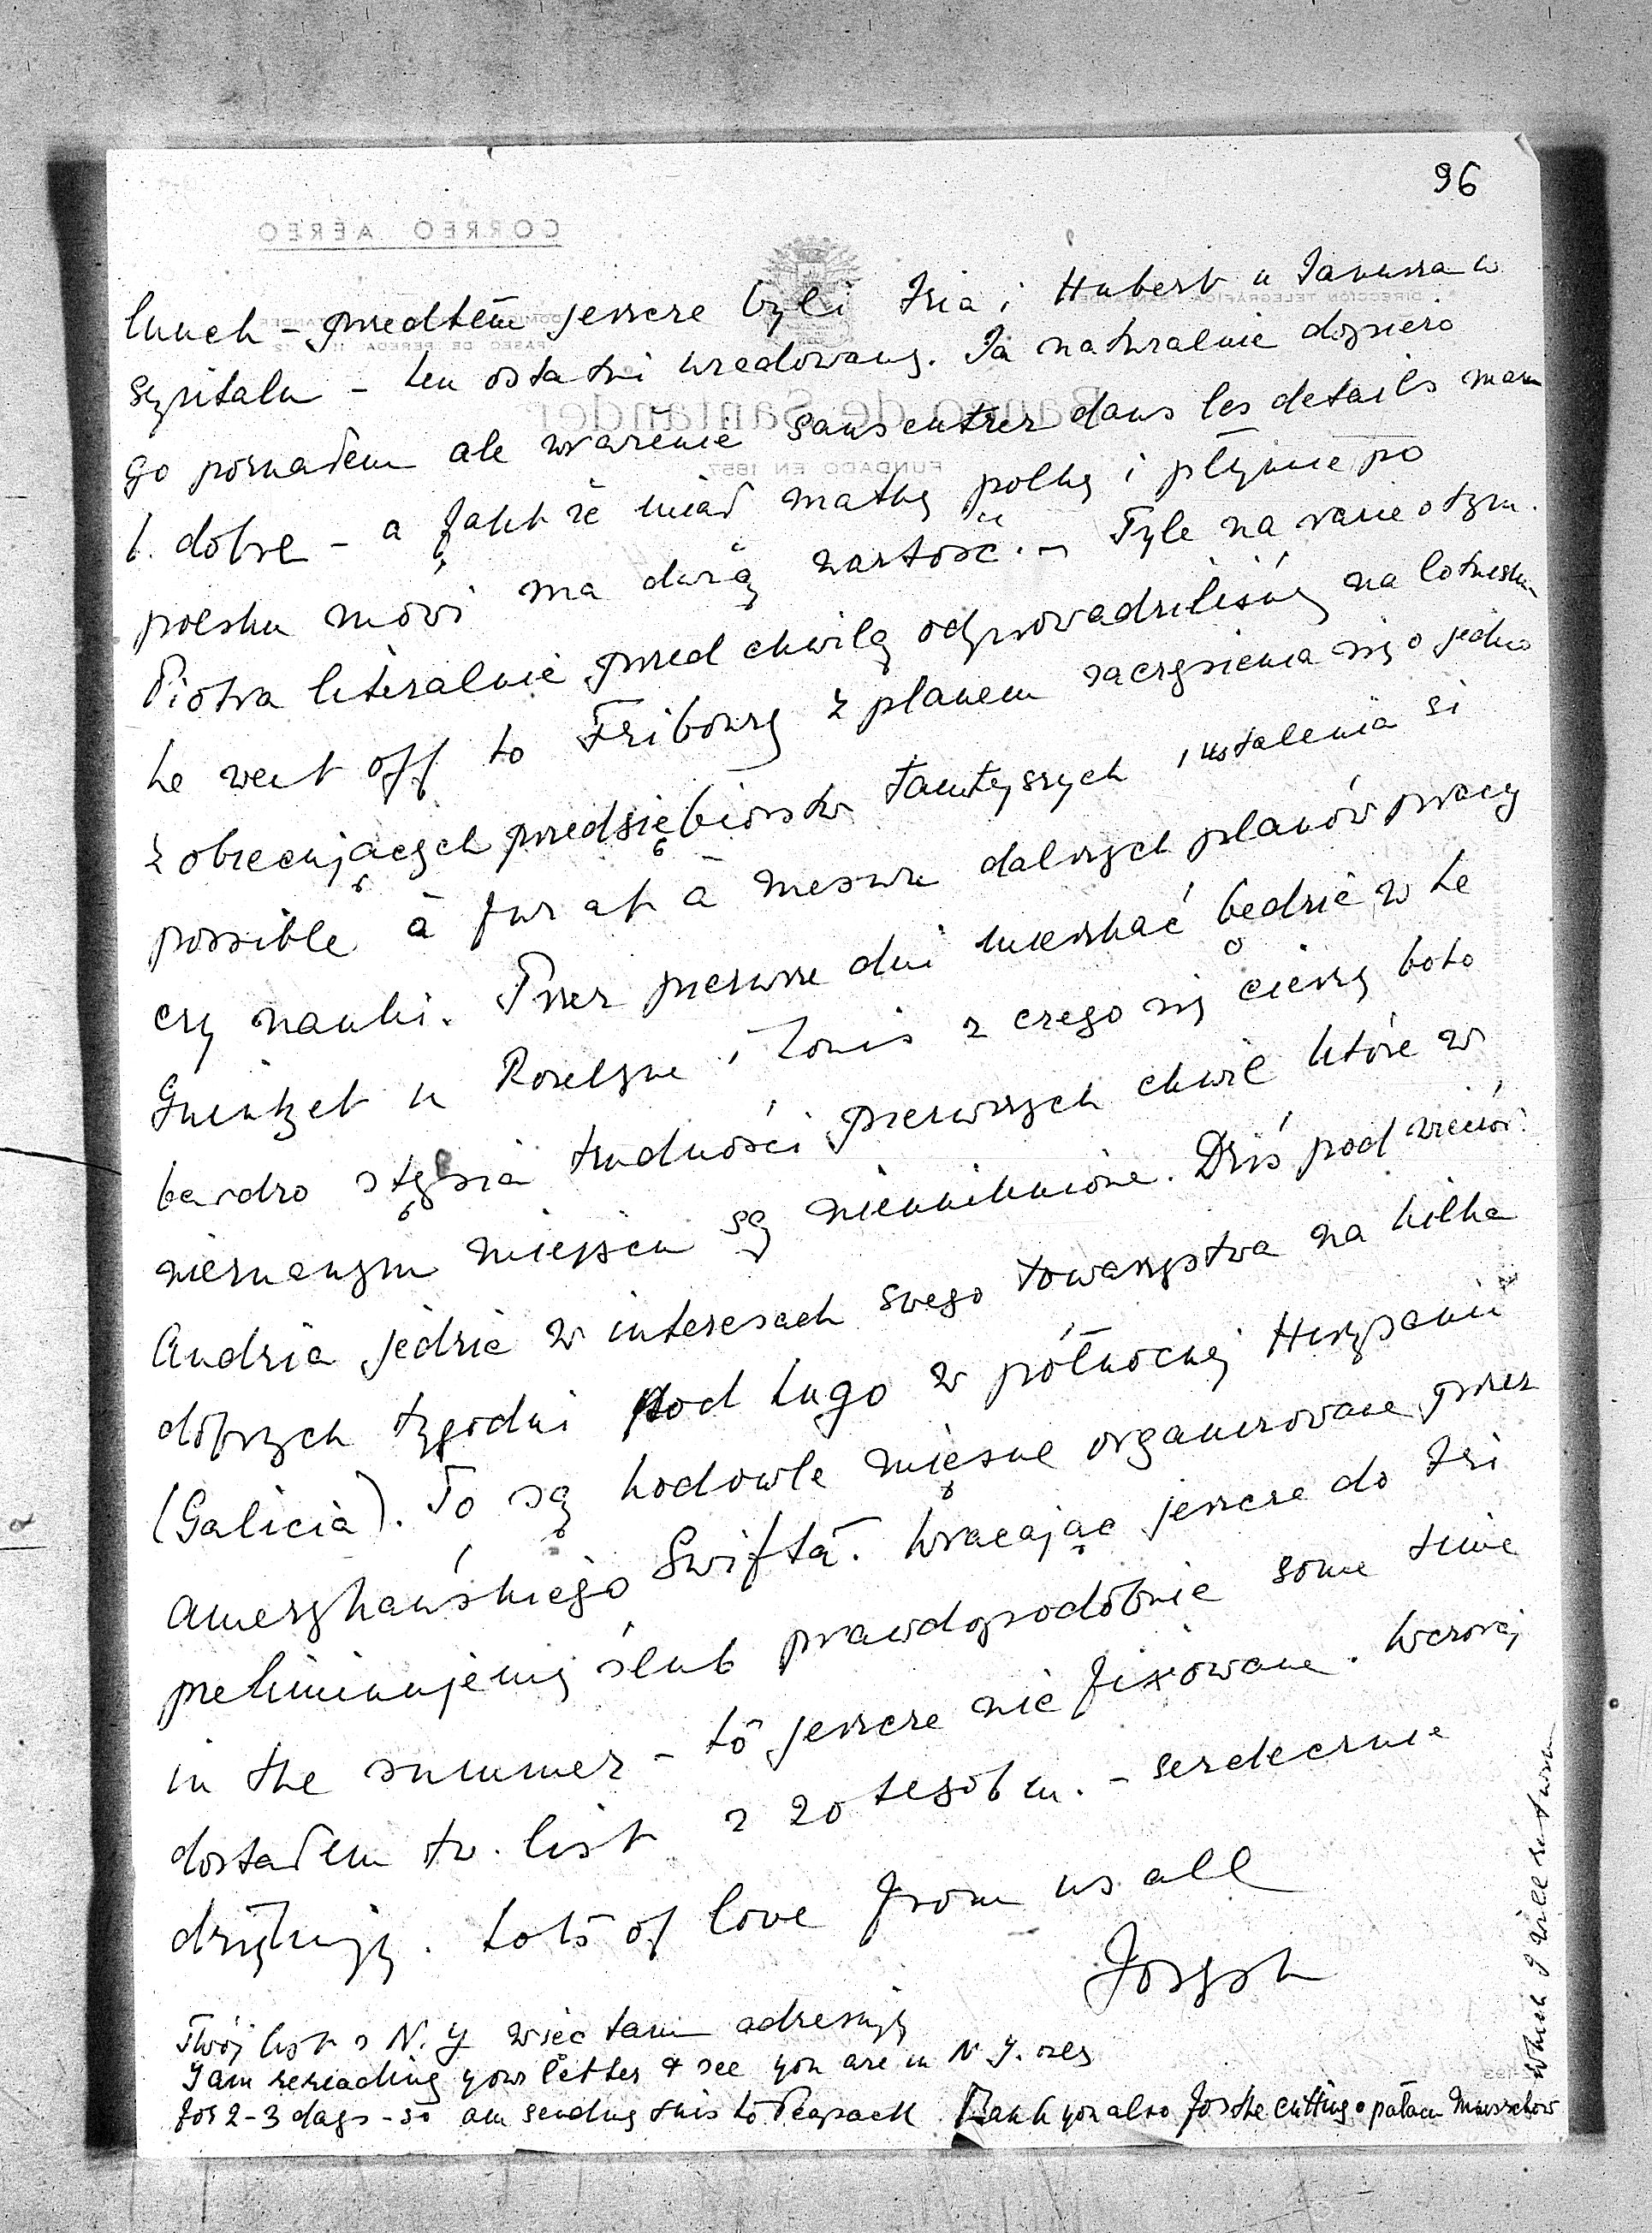 96
CORREO AÉREO
Banco de Santander
FUNDADO EN 1857
lunch – przedtem jeszcze byli Iria i Hubert u Janusza w
szpitalu – ten ostatni uradowany. Ja naturalnie dopiero
go poznałem ale wrażenie sans entrer dans les details mam
b. dobre – a fakt że miał matkę polkę i płynnie po
polsku mówi ma dużą wartość. – Tyle na razie o tym.
Piotra literalnie przed chwilą odprowadziliśmy na lotnisku
he went off to Fribourg z planem zaczepienia się o jedno
z obiecujących przedsiębiorstw tamtejszych, ustalenia si
possible à fur et à mesure dalszych planów pracy
czy nauki. Przez pierwsze dni mieszkać będzie w Le
Guintzet u Roselyne i Louis z czego się cieszę bo to
bardzo stępia trudności pierwszych chwil które w
nieznanym miejscu są nieuniknione. Dziś pod wieczór
Andrzia jedzie w interesach swego towarzystwa na kilka
dobrych tygodni pod Lugo w północnej Hiszpanii
(Galicia). To są hodowle mięsne organizowane przez
amerykańskiego Swifta. Wracając jeszcze do Iri
preliminujemy ślub prawdopodobnie some time
in the summer – to jeszcze nie fixowane. Wczoraj
dostałem tw. list z 20 tegob m. – serdecznie
dziękuję. Lots of love from us all
Joseph
Twój list z N.Y więc tam adresuję
I am rereading your letter & see you are in N.Y. only
for 2-3 days – so am sending this to Peapack. Thank you also for the cutting o pałacu
which I will return